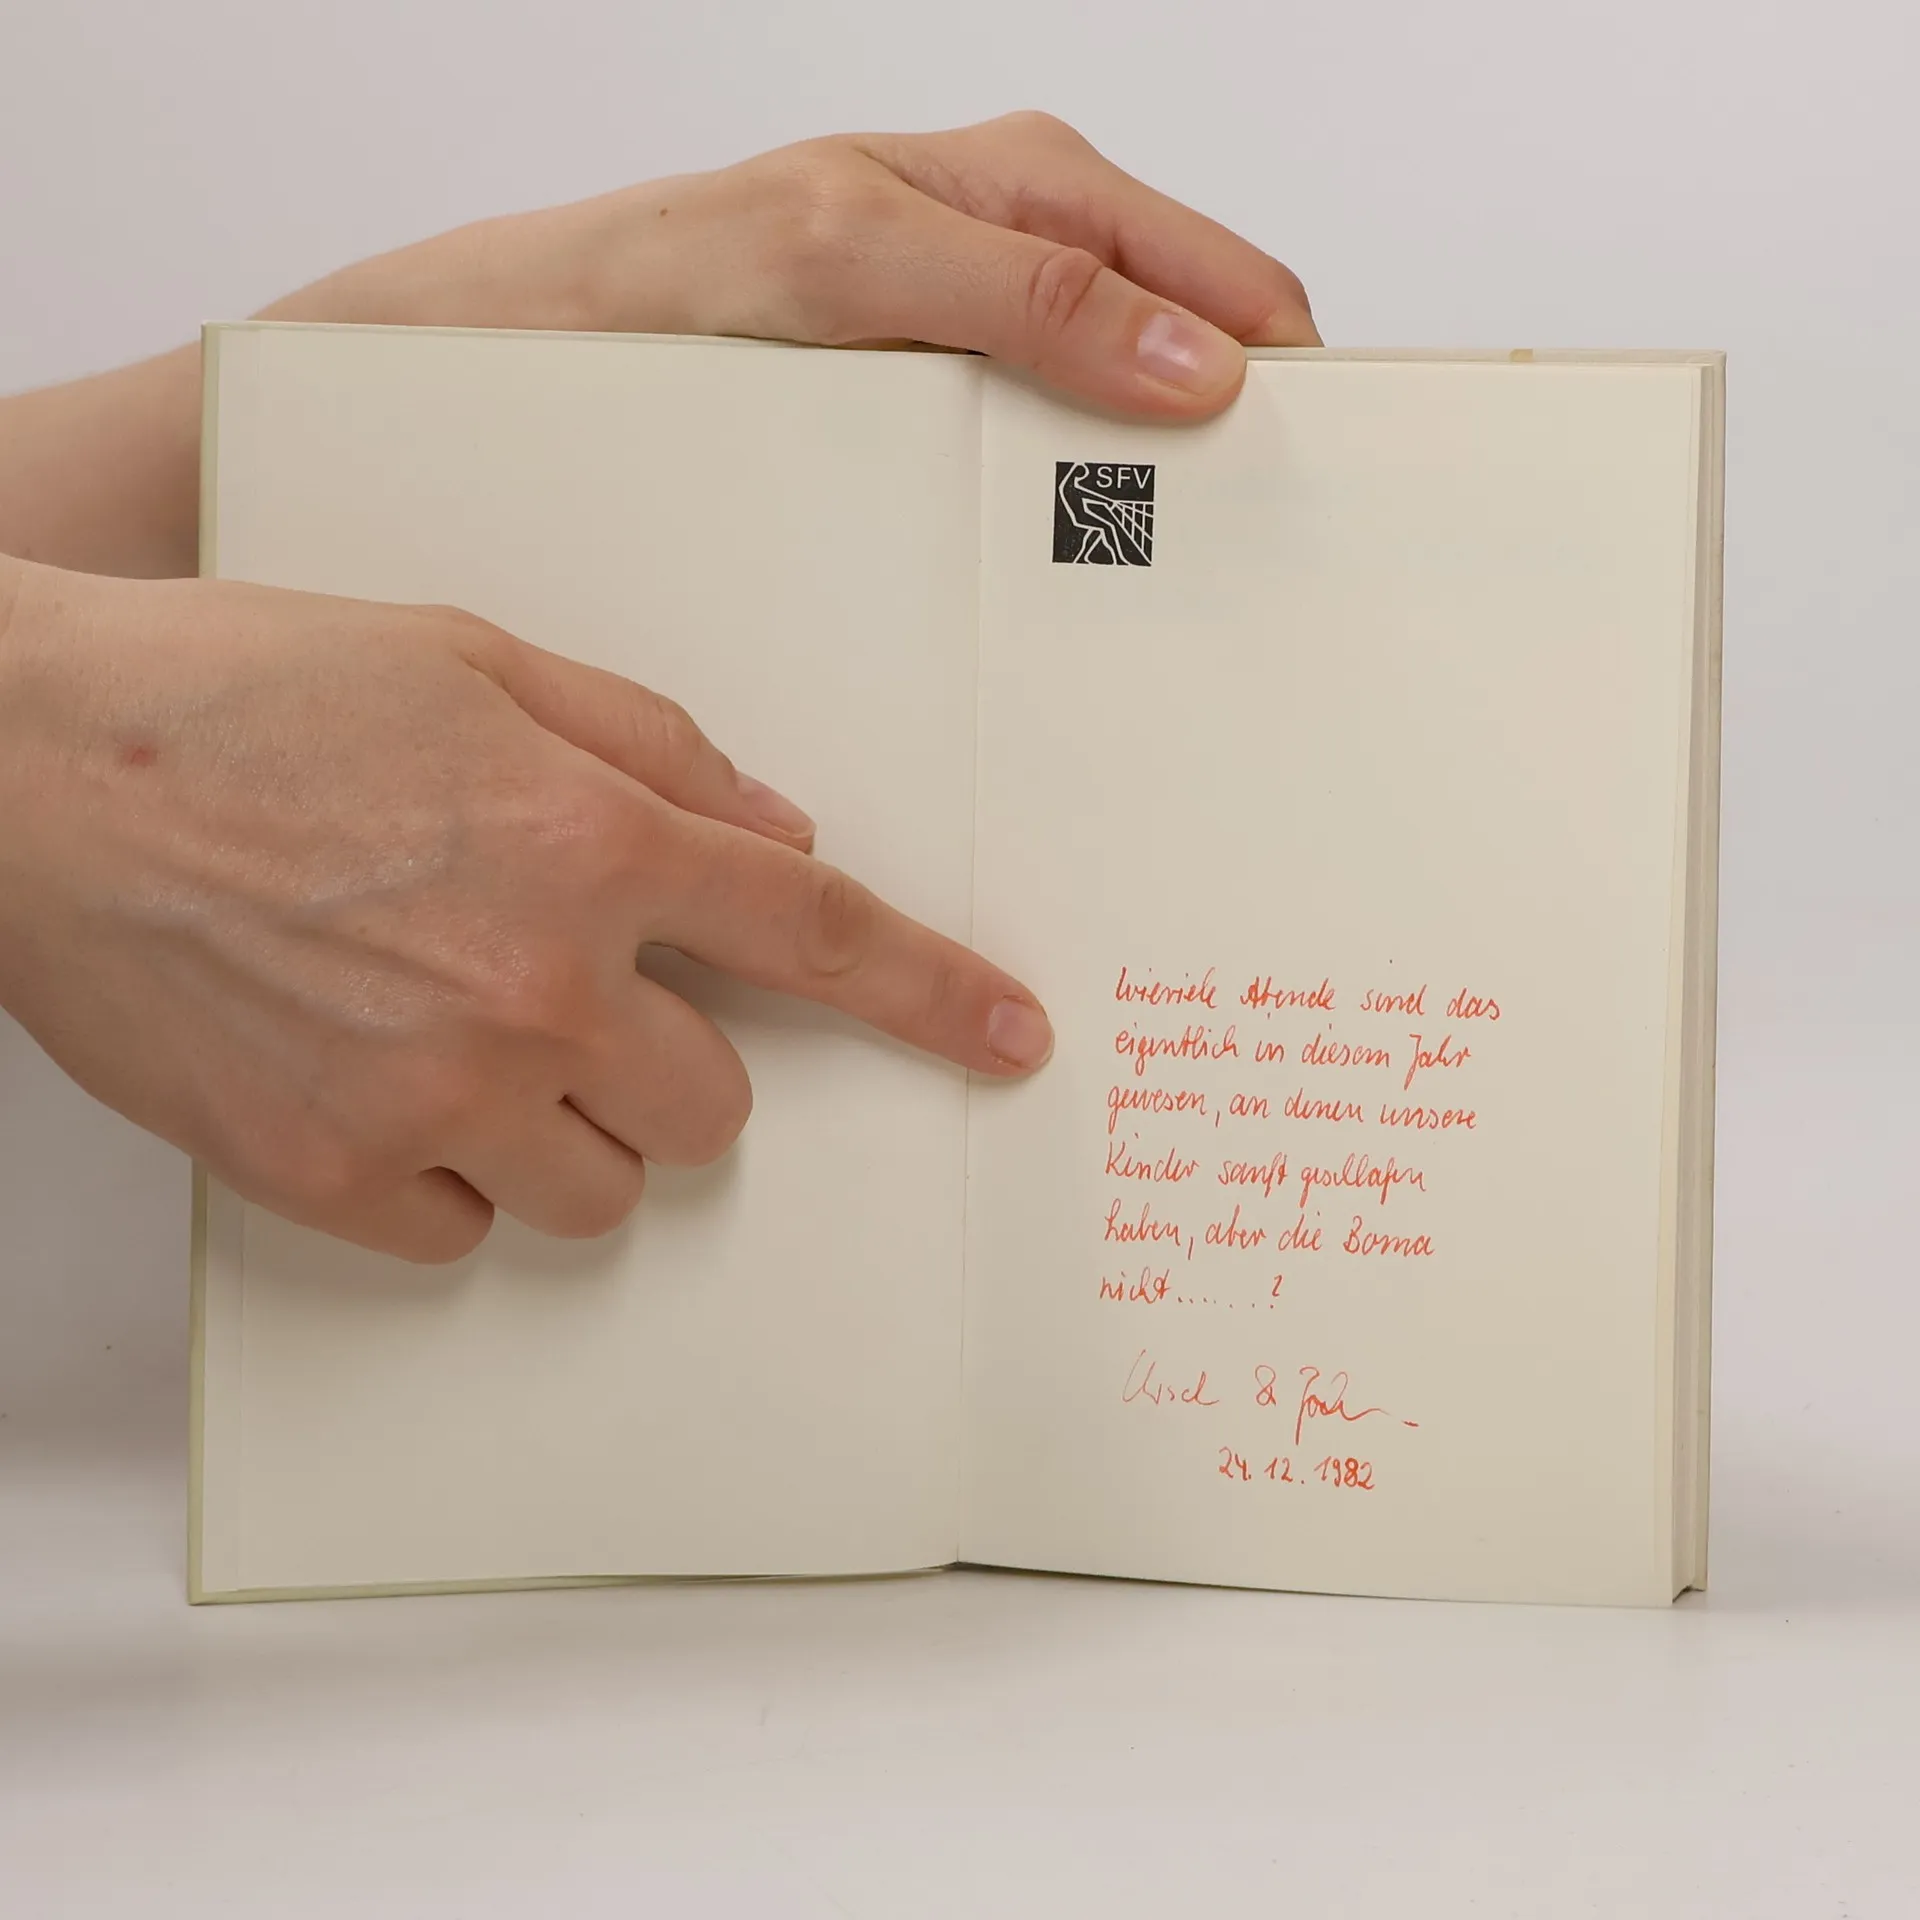 SFV
Wieviele Abende sind das
eigentlich in diesem Jahr
gewesen, an denen unsere
Kinder sanft geschlafen
haben, aber die Boma
nicht.......?
Ursel &
24.12.1982